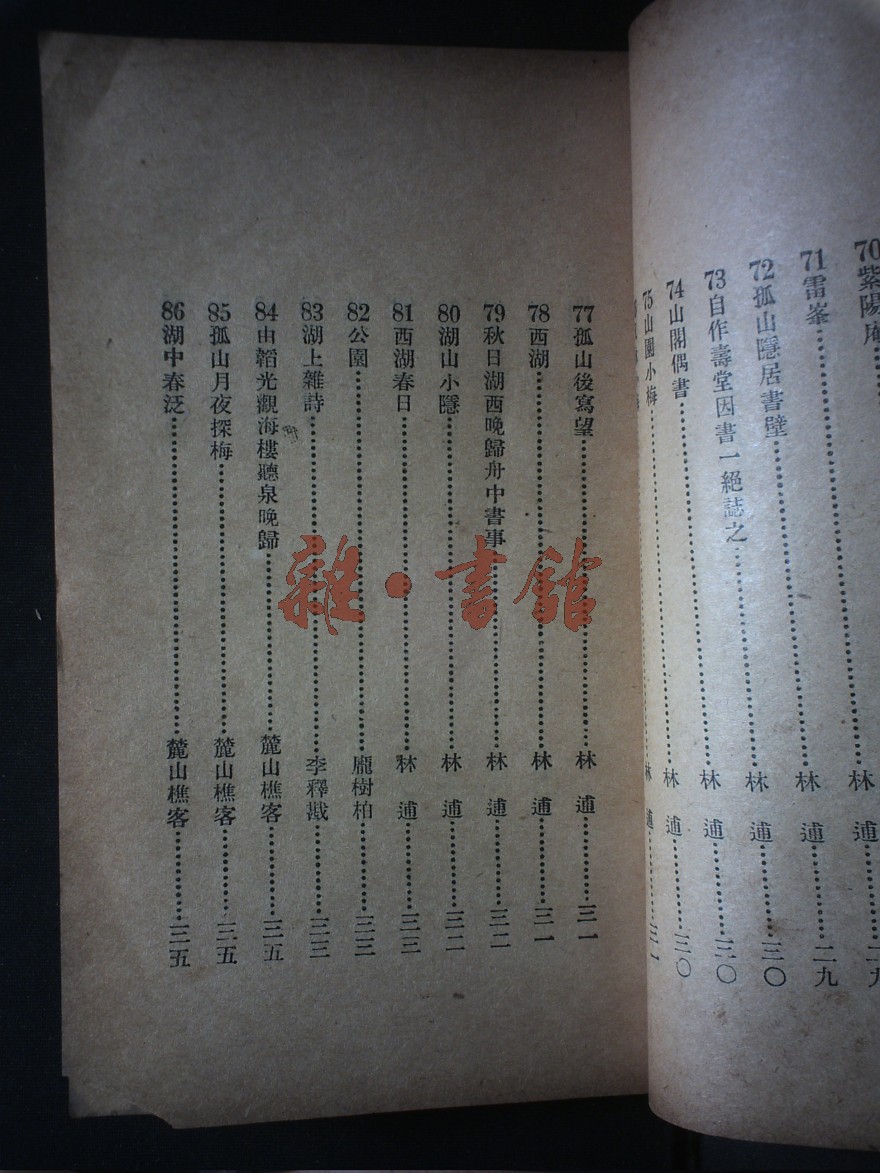 70紫陽庵……林逋……二九
71雷峯……林逋……二九
72孤山隱居書壁……林逋……三〇
73自作壽堂因書一絕誌之……林逋……三〇
74山閣偶書……林逋……三〇
75山園小梅……林逋……三一
77孤山後寫望……林逋……三一
78西湖……林逋……三一
79秋日湖西晚歸舟中書事……林逋……三二
80湖山小隱……林逋……三二
81西湖春日……林逋……三三
82公園……龐樹柏……三三
83湖上雜詩……李釋戡……三三
84由韜光觀海樓聽泉晚歸……麓山樵客……三五
85孤山月夜探梅……麓山樵客……三五
86湖中春泛……麓山樵客……三五
雜·書館